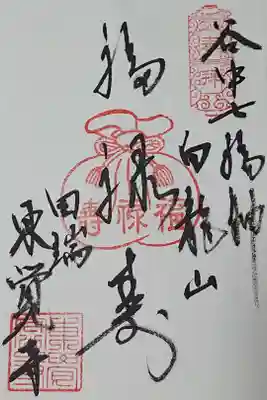 谷中七福神
白龍山
福禄寿
田端
東覚寺
壽禄福